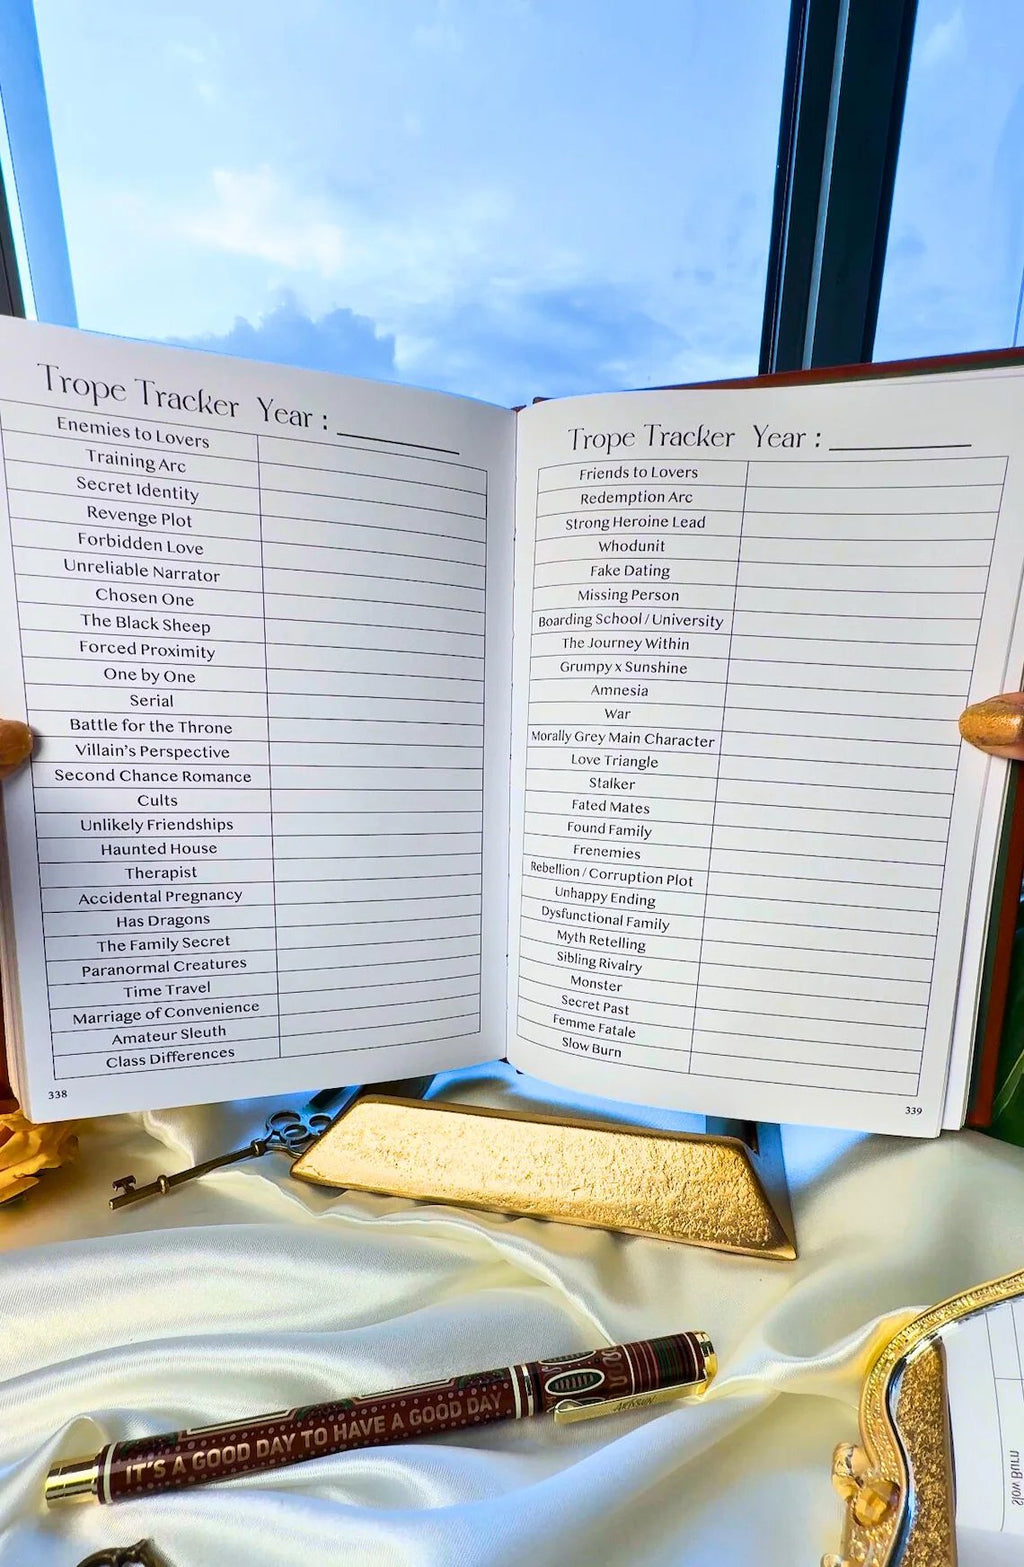 Trope Tracker Year : ________
Enemies to Lovers
Training Arc
Secret Identity
Revenge Plot
Forbidden Love
Unreliable Narrator
Chosen One
The Black Sheep
Forced Proximity
One by One
Serial
Battle for the Throne
Villain's Perspective
Second Chance Romance
Cults
Unlikely Friendships
Haunted House
Therapist
Accidental Pregnancy
Has Dragons
The Family Secret
Paranormal Creatures
Time Travel
Marriage of Convenience
Amateur Sleuth
Class Differences
338
Trope Tracker Year : ________
Friends to Lovers
Redemption Arc
Strong Heroine Lead
Whodunit
Fake Dating
Missing Person
Boarding School / University
The Journey Within
Grumpy x Sunshine
Amnesia
War
Morally Grey Main Character
Love Triangle
Stalker
Fated Mates
Found Family
Frenemies
Rebellion / Corruption Plot
Unhappy Ending
Dysfunctional Family
Myth Retelling
Sibling Rivalry
Monster
Secret Past
Femme Fatale
Slow Burn
339
IT'S A GOOD DAY TO HAVE A GOOD DAY
Slow Burn